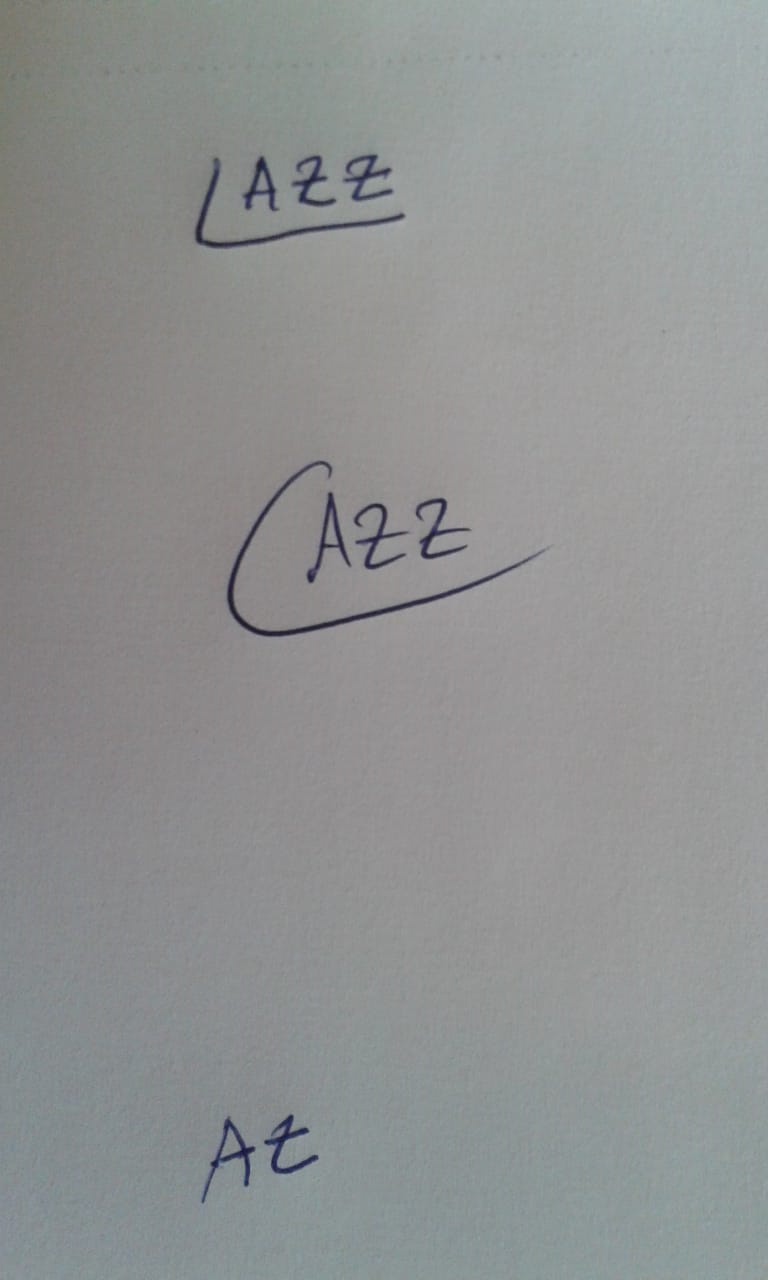 LAZZ
CAZZ
AZ